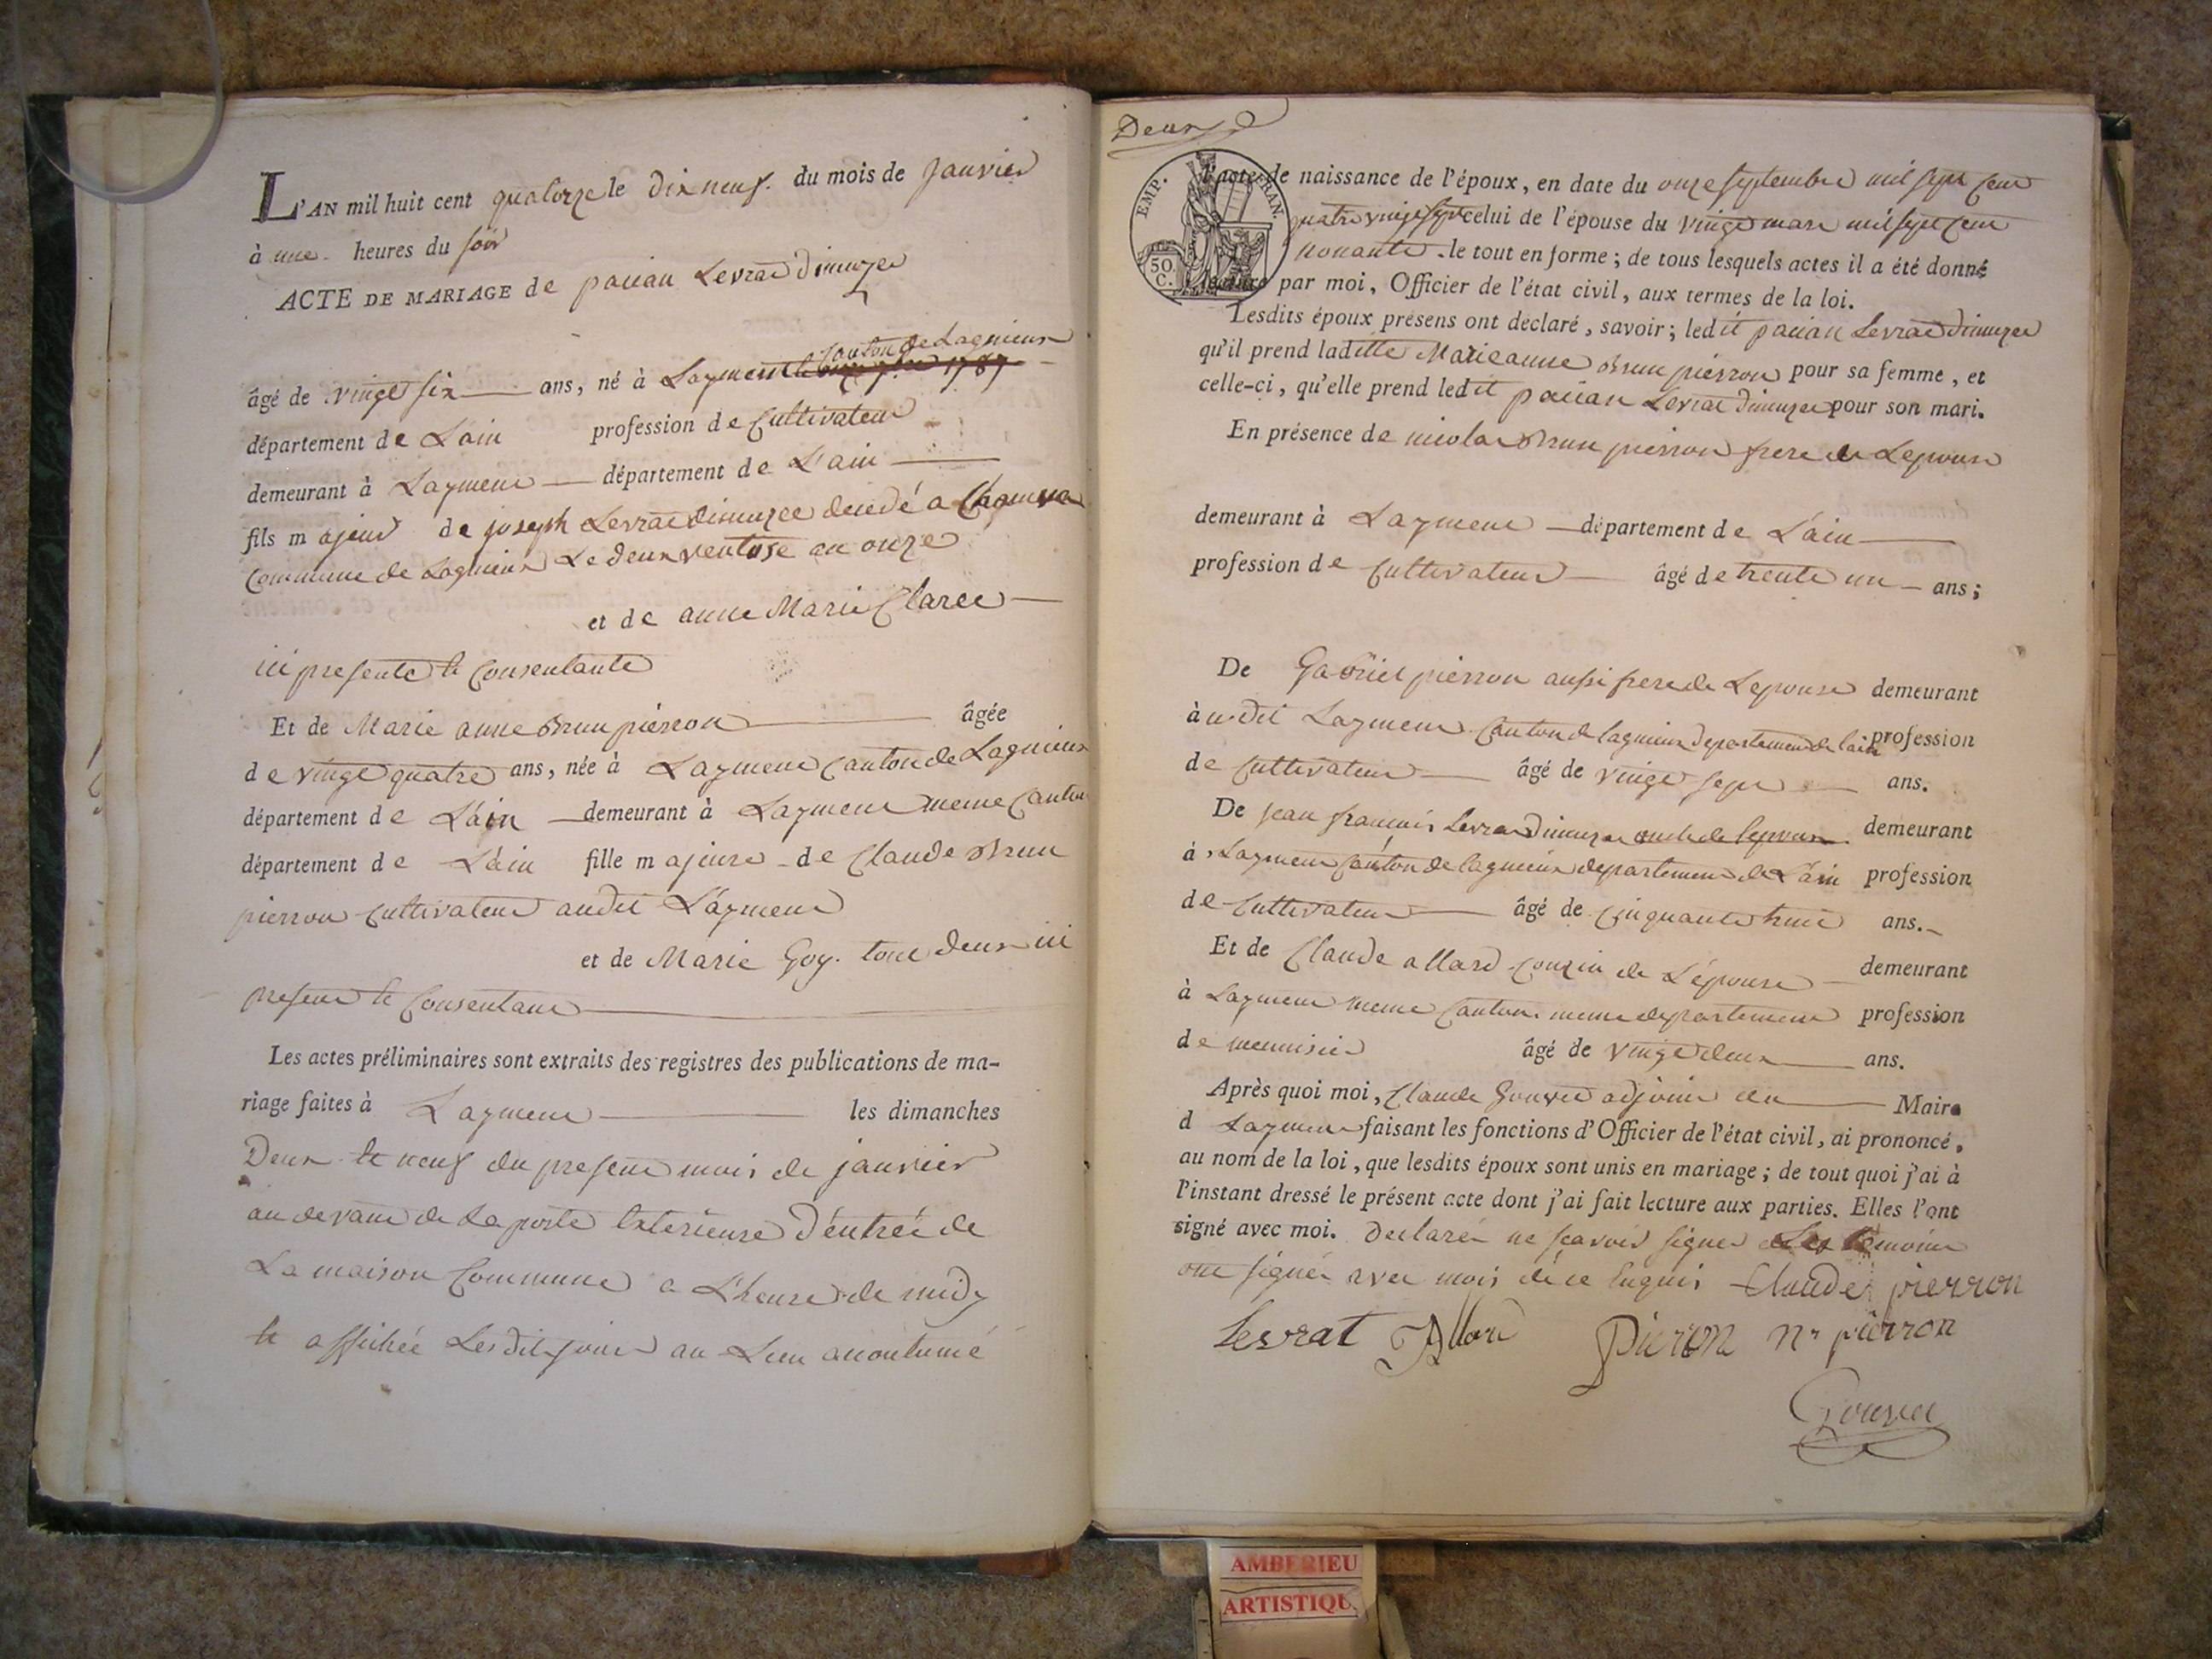 L'AN mil huit cent quatorze le dix neuf du mois de janvier
à une heures du soir
ACTE DE MARIAGE de pacian Levrat dimuzee
canton de Lagnieux
âgé de vingt six ans, né à Laymen
département de L'ain profession de Cultivateur
demeurant à Laymen département de L'ain
fils majeur de joseph Levrat dimuzee decedé a
Commune de Lagnieux Le deux ventose an onze
et de anne Marie Claree
ici presente et Consentante
Et de Marie anne Brun pierron âgée
de vingt quatre ans, née à Laymen Canton de Lagnieux
département de L'ain demeurant à Laymen meme Canton
département de L'ain fille majeure de Claude Brun
pierron Cultivateur audit Laymen
et de Marie Goy. tout deux ici
present et Consentant
Les actes préliminaires sont extraits des registres des publications de ma-
riage faites à Laymen les dimanches
Deux et neuf du present mois de janvier
au devant de La porte exterieure d'éntrée de
La maison Commune a L'heure de midy
et affichée Lesdit jours au Lieu acoutumé
Deux
EMP. FRAN.
50 C.
L'acte de naissance de l'époux, en date du onze septembre mil sept cent
quatre vingt sept celui de l'épouse du vingt mars mil sept cent
nonante le tout en forme ; de tous lesquels actes il a été donné
lecture par moi, Officier de l'état civil, aux termes de la loi.
Lesdits époux présens ont déclaré, savoir ; ledit pacian Levrat dimuzee
qu'il prend laditte Marie anne Brun pierron pour sa femme, et
celle-ci, qu'elle prend ledit pacian Levrat dimuzee pour son mari.
En présence de nicolas Brun pierron frere de Lepouse
demeurant à Laymen département de L'ain
profession de Cultivateur âgé de trente un ans ;
De Gabriel pierron aussi frere de Lepouse demeurant
à udit Laymen Canton de lagnieux departement de lain profession
de Cultivateur âgé de vingt sept ans.
De jean francois Levrat dimuzee oncle de lepoux demeurant
à Laymen Canton de lagnieux departement de L'ain profession
de Cultivateur âgé de Cinquante huit ans.
Et de Claude allard Couzin de L'épouse demeurant
à Laymen meme Canton meme departement profession
de menuisier âgé de vingt deux ans.
Après quoi moi, Claude Gouvet adjoint du Maire
d Laymen faisant les fonctions d'Officier de l'état civil, ai prononcé,
au nom de la loi, que lesdits époux sont unis en mariage ; de tout quoi j'ai à
l'instant dressé le présent acte dont j'ai fait lecture aux parties. Elles l'ont
signé avec moi. declaré ne scavoir signer Les temoins
ont signé avec mois de ce enquis Claude pierron
Levrat Allard Pieron nr pierron
Gouvet
AMBERIEU
ARTISTIQU